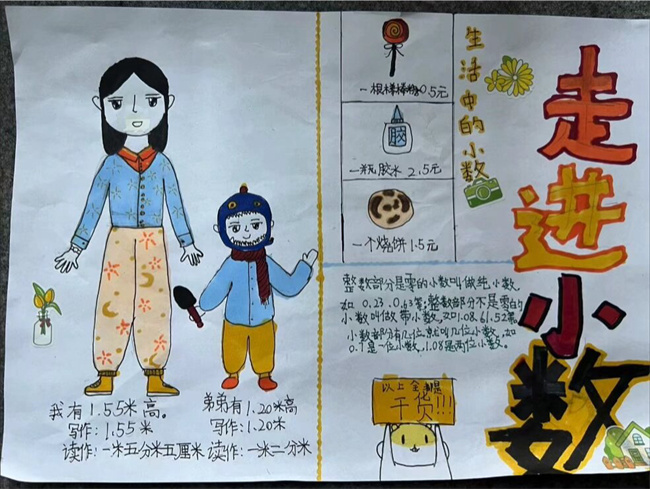 走进小数
生活中的小数
一根棒棒糖0.5元
胶
一瓶胶水 2.5元
一个烧饼1.5元
整数部分是零的小数叫做纯小数
如 0.23、0.63等;整数部分不是零的
小数叫做带小数。如1.08.61.52等。
小数部分有几位就叫几位小数,如
0.1是一位小数,1.08是两位小数。
以上全都是
干货!!!
我有1.55米高。
写作:1.55米
读作:一米五分米五厘米
弟弟有1.20米高
写作:1.20米
读作:一米二分米